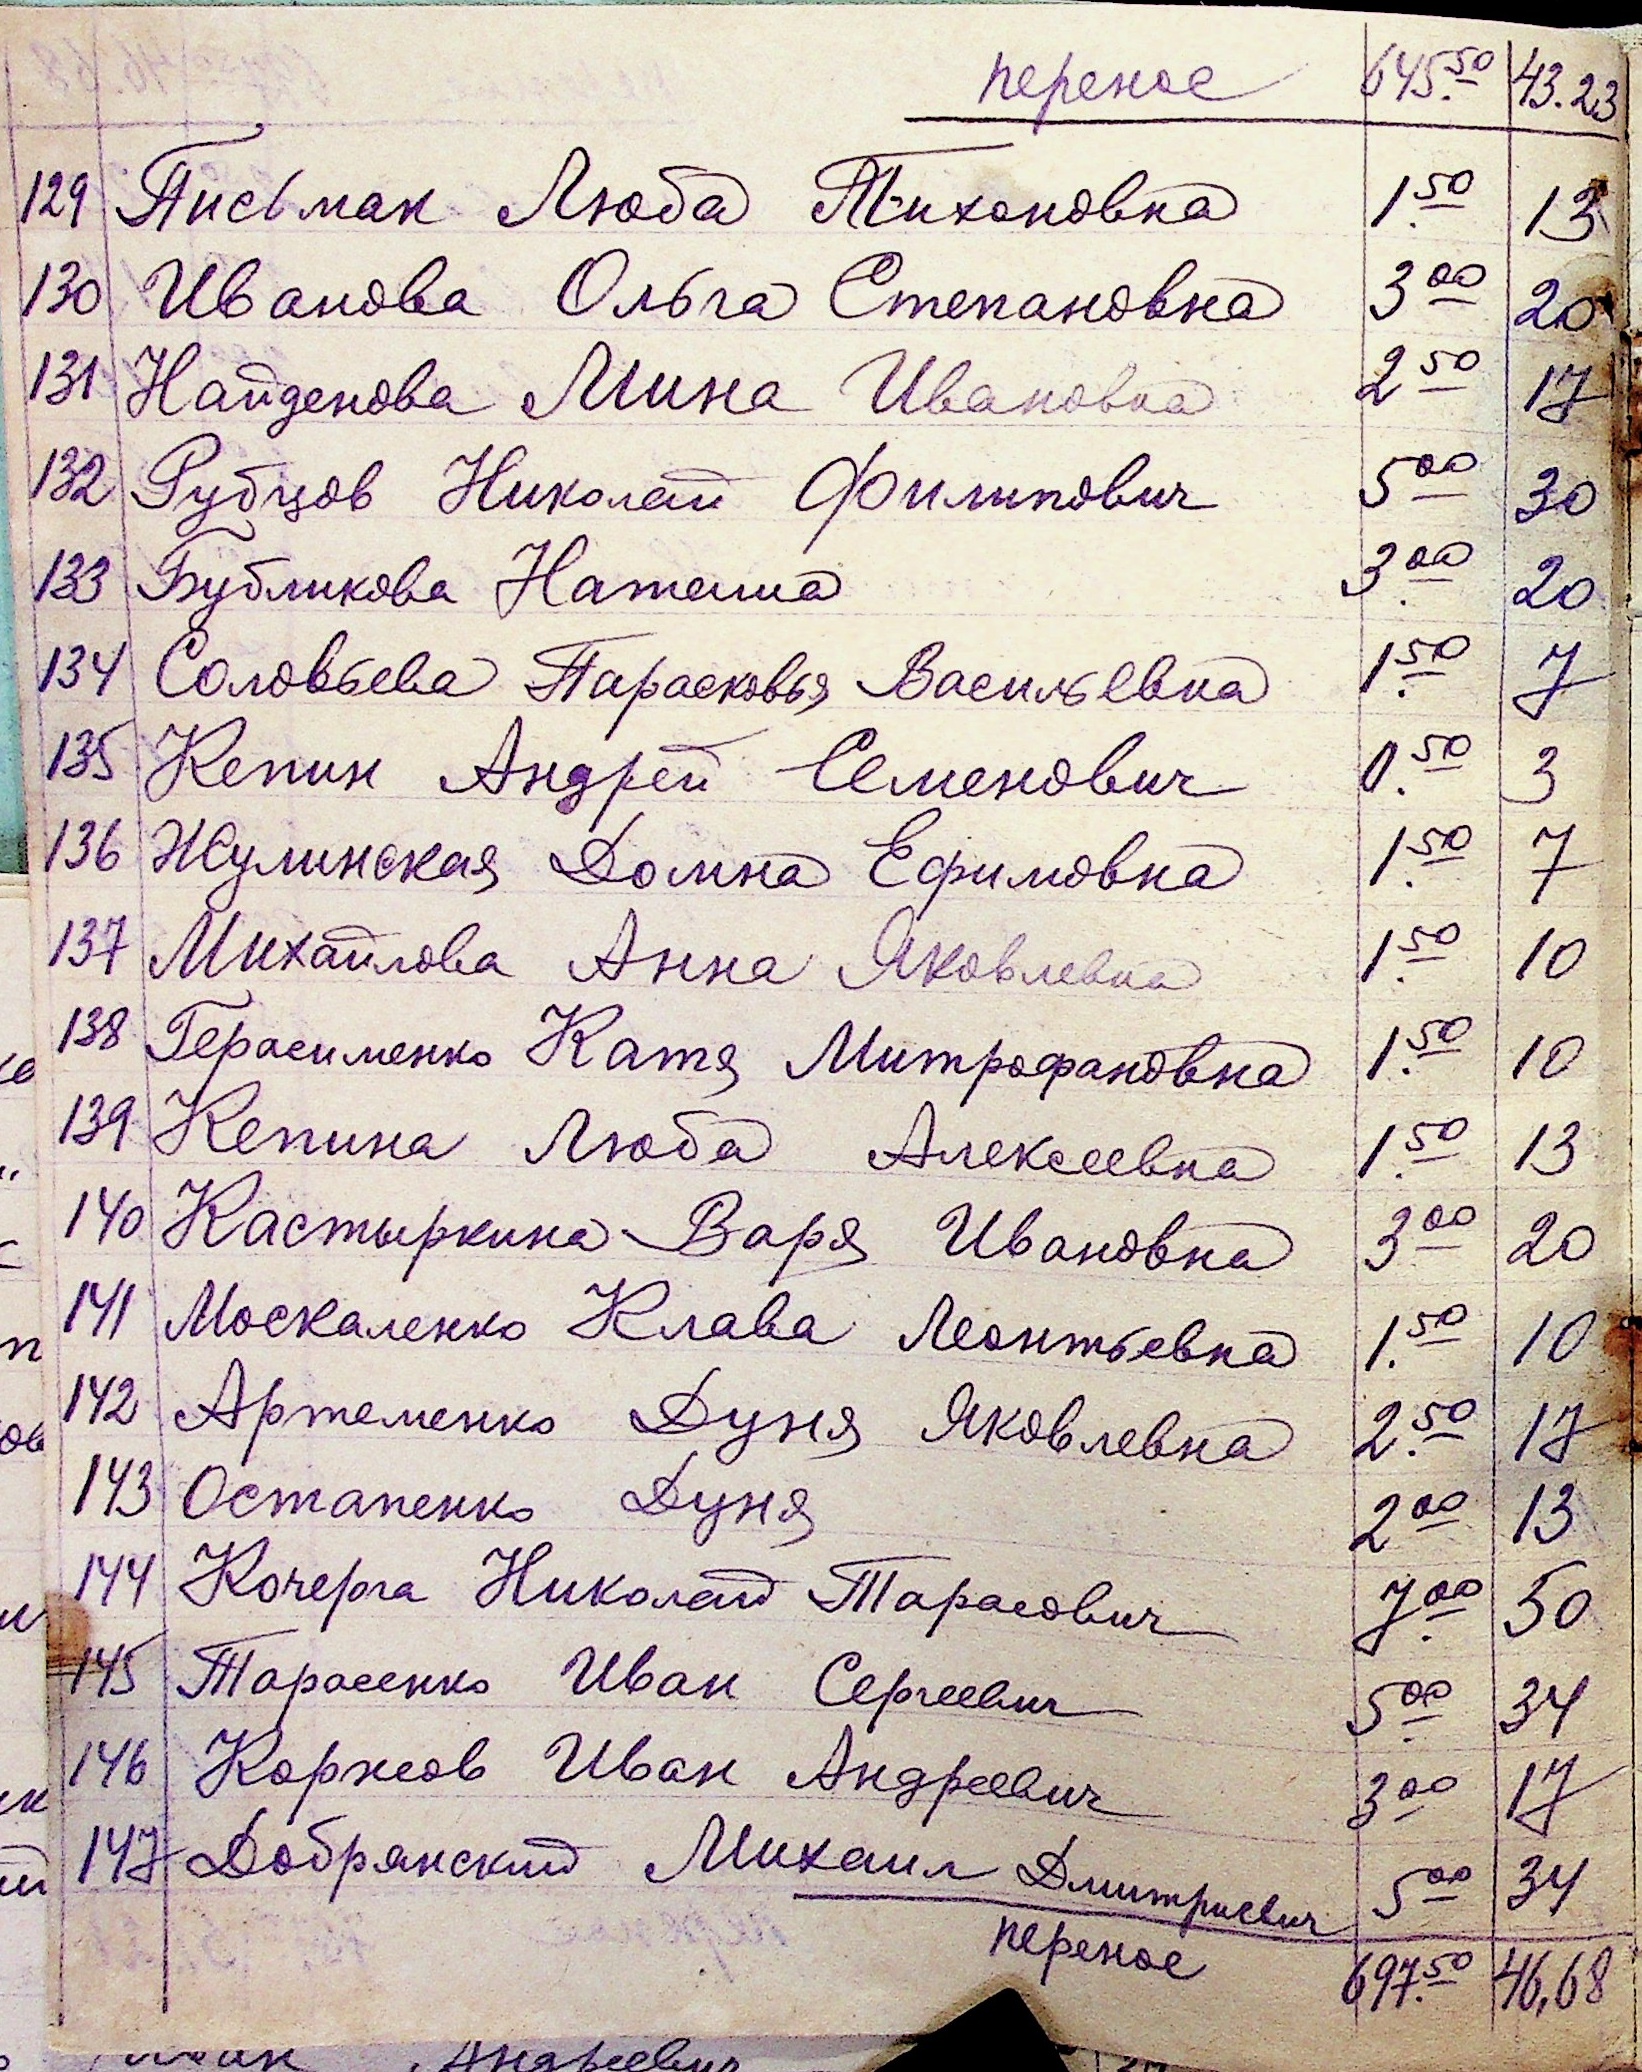 перенос 645.50 43.23
129 Письмак Люба Тихоновна 1.50 13
130 Иванова Ольга Степановна 3 00 20
131 Найденова Мина Ивановна 2 50 17
132 Рубцов Николай Филипович 5 00 30
133 Бубликова Наташа 3.00 20
134 Соловьева Парасковья Васильевна 1.50 7
135 Кепин Андрей Семенович 0.50 3
136 Жулинская Домна Ефимовна 1.50 7
137 Михайлова Анна Яковлевна 1.50 10
138 Герасименко Катя Митрофановна 1.50 10
139 Кепина Люба Алексеевна 1.50 13
140 Кастыркина Варя Ивановна 3.00 20
141 Москаленко Клава Леонтьевна 1.50 10
142 Артеменко Дуня Яковлевна 2.50 17
143 Остапенко Дуня 2 00 13
144 Кочерга Николай Тарасович 7.00 50
145 Тарасенко Иван Сергеевич 5.00 34
146 Коржов Иван Андреевич 3 00 17
147 Добрянский Михаил Дмитриевич 5 00 34
перенос 697.50 46,68
Андреевич